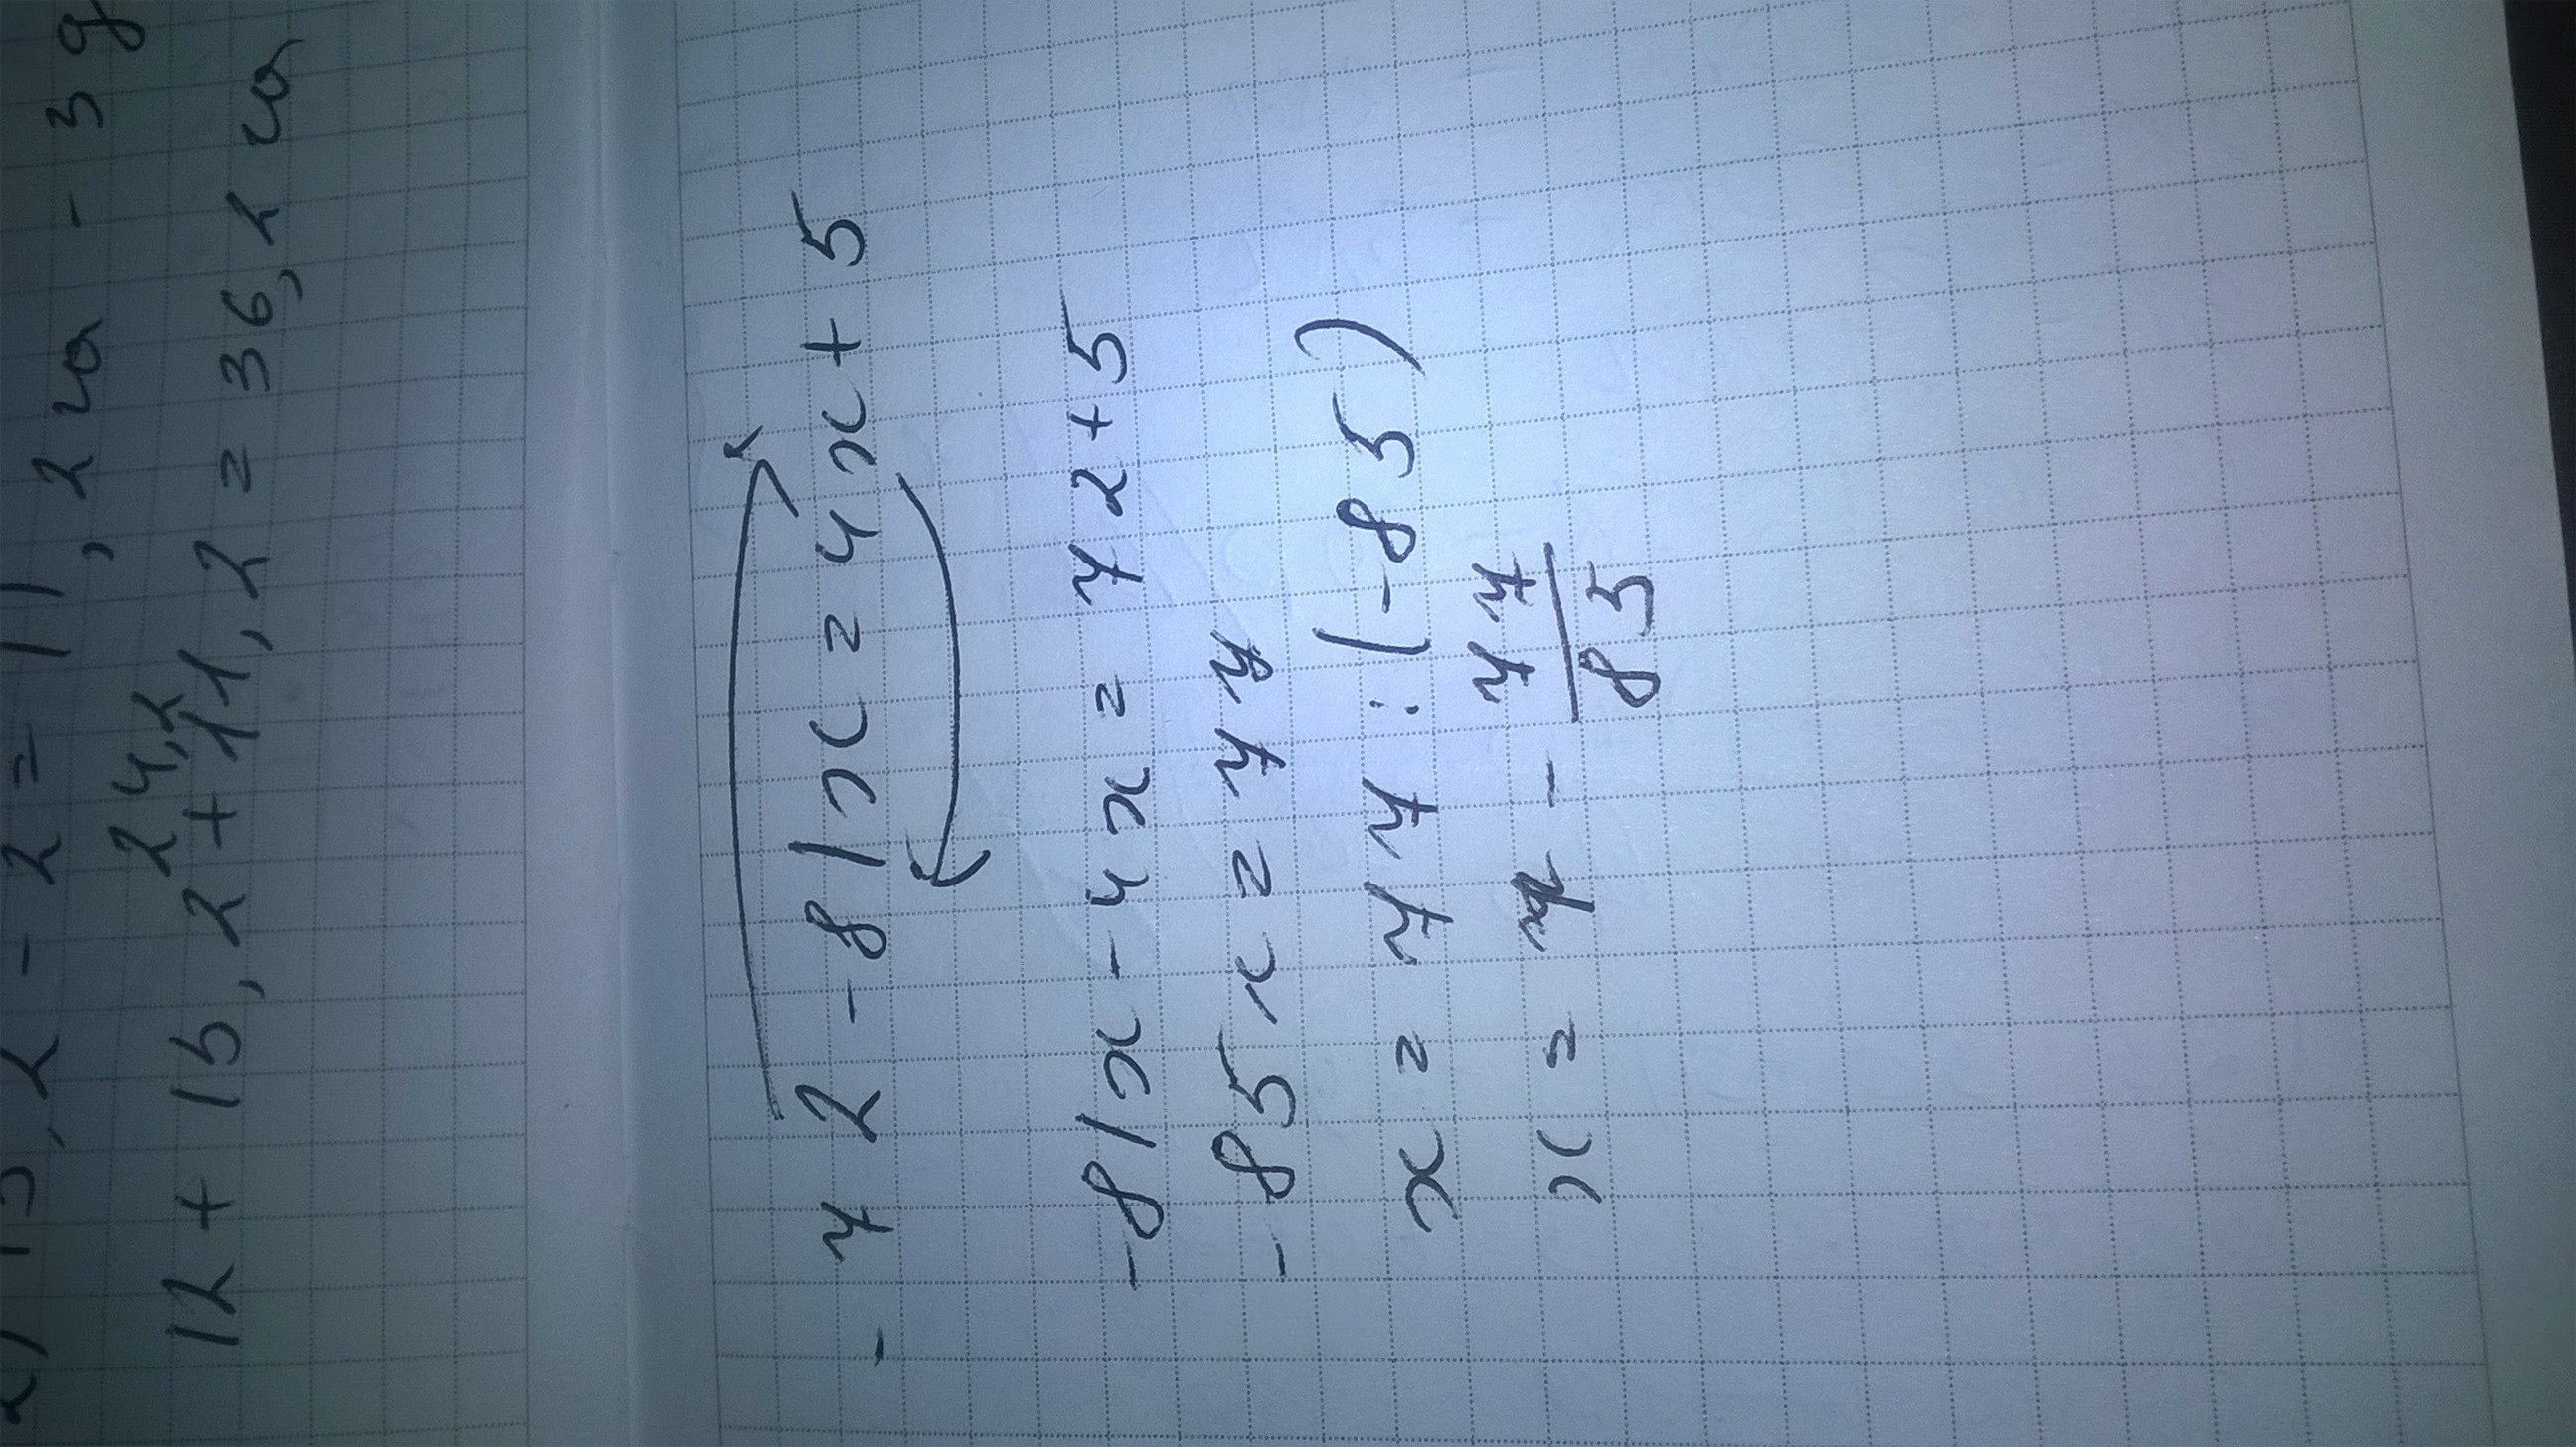 2 - 2 = 11,2 см - 3 д
24,2
12 + 15,2 + 11,2 = 36,2 см
- 72 - 81x = 4x + 5
-81x - 4x = 72 + 5
-85x = 77
x = 77 : (-85)
x = - 77/85